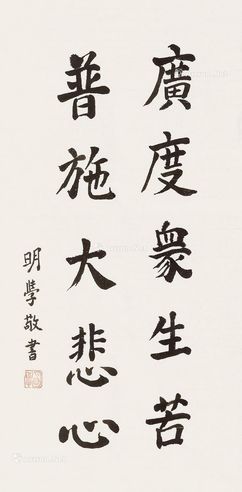 廣度衆生苦
普施大悲心
明學敬書